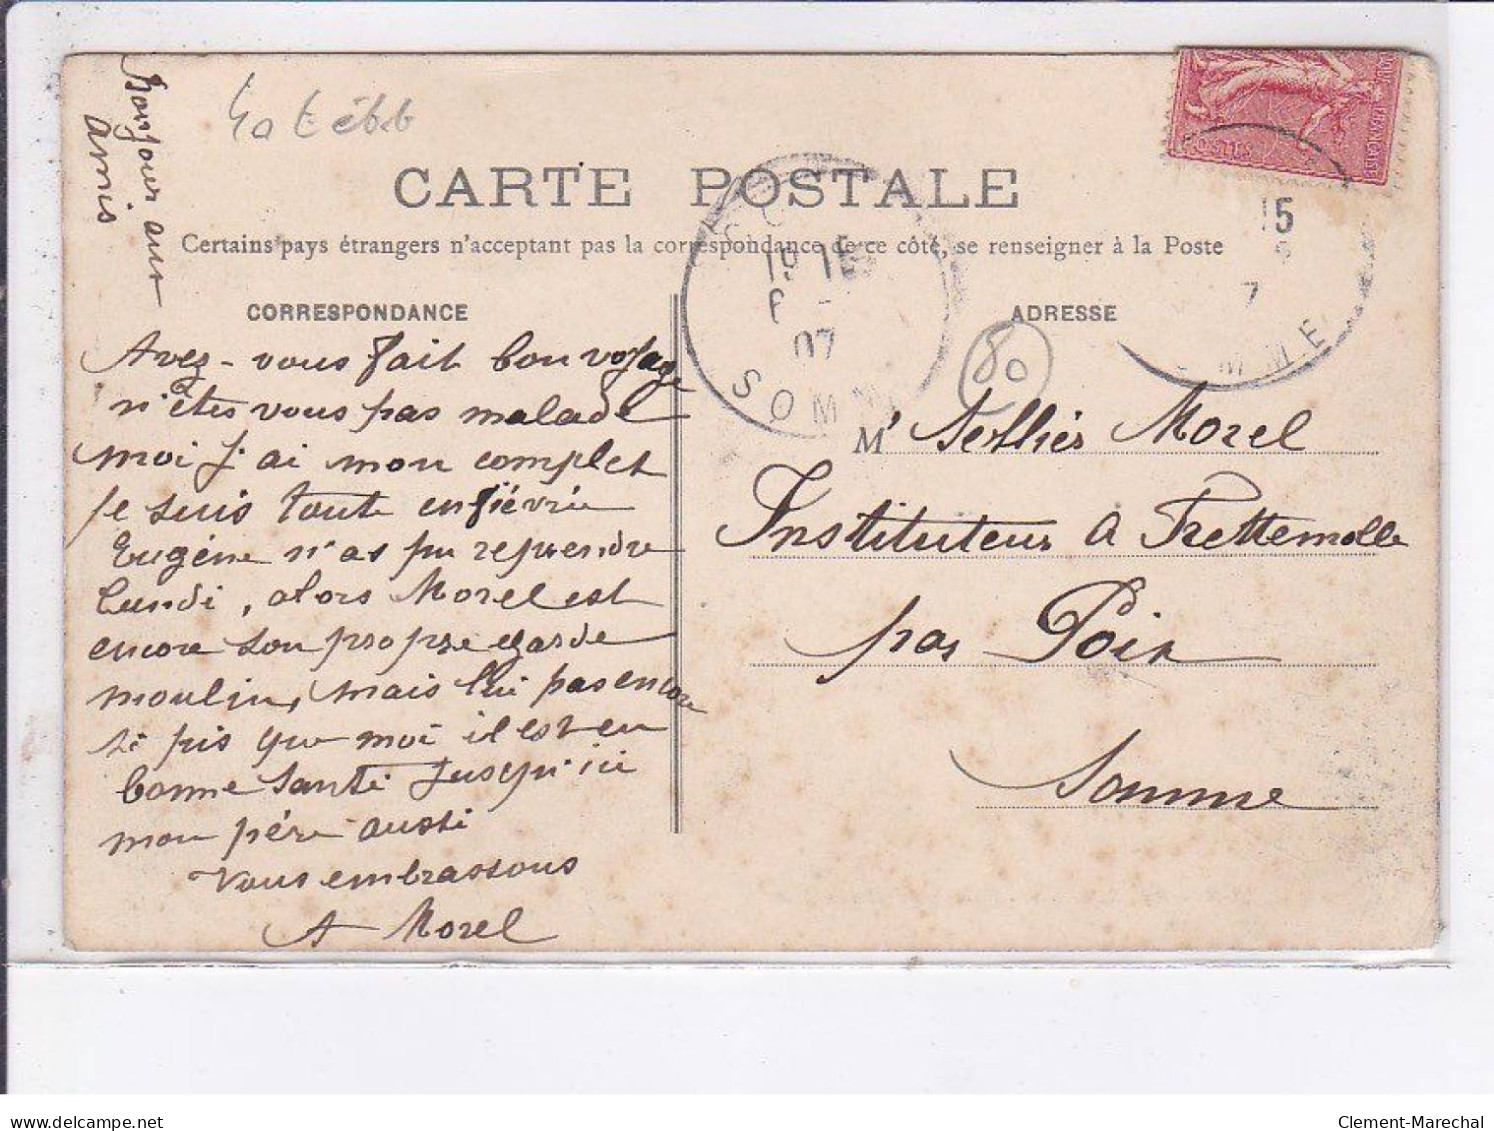 Bonjour aux
amis
CARTE POSTALE
Certains pays étrangers n'acceptent pas la correspondance de ce côté, se renseigner à la Poste
CORRESPONDANCE
ADRESSE
Avez-vous fait bon voyage
n'êtes vous pas malade
moi j'ai mon complet
je suis toute enfiévrée
Eugéne n'as pu reprendre
lundi, alors Morel est
encore son propre garde
moulin, mais lui pas encore
si pis que moi il est en
bonne santé jusqu'ici
mon père aussi
Vous embrassons
A Morel
15
7
MME
07
SOMM
80
Mr Tellier Morel
Instituteur a Frettemolle
par Poix
Somme
POSTES
delcampe.net
Clement-Marechal